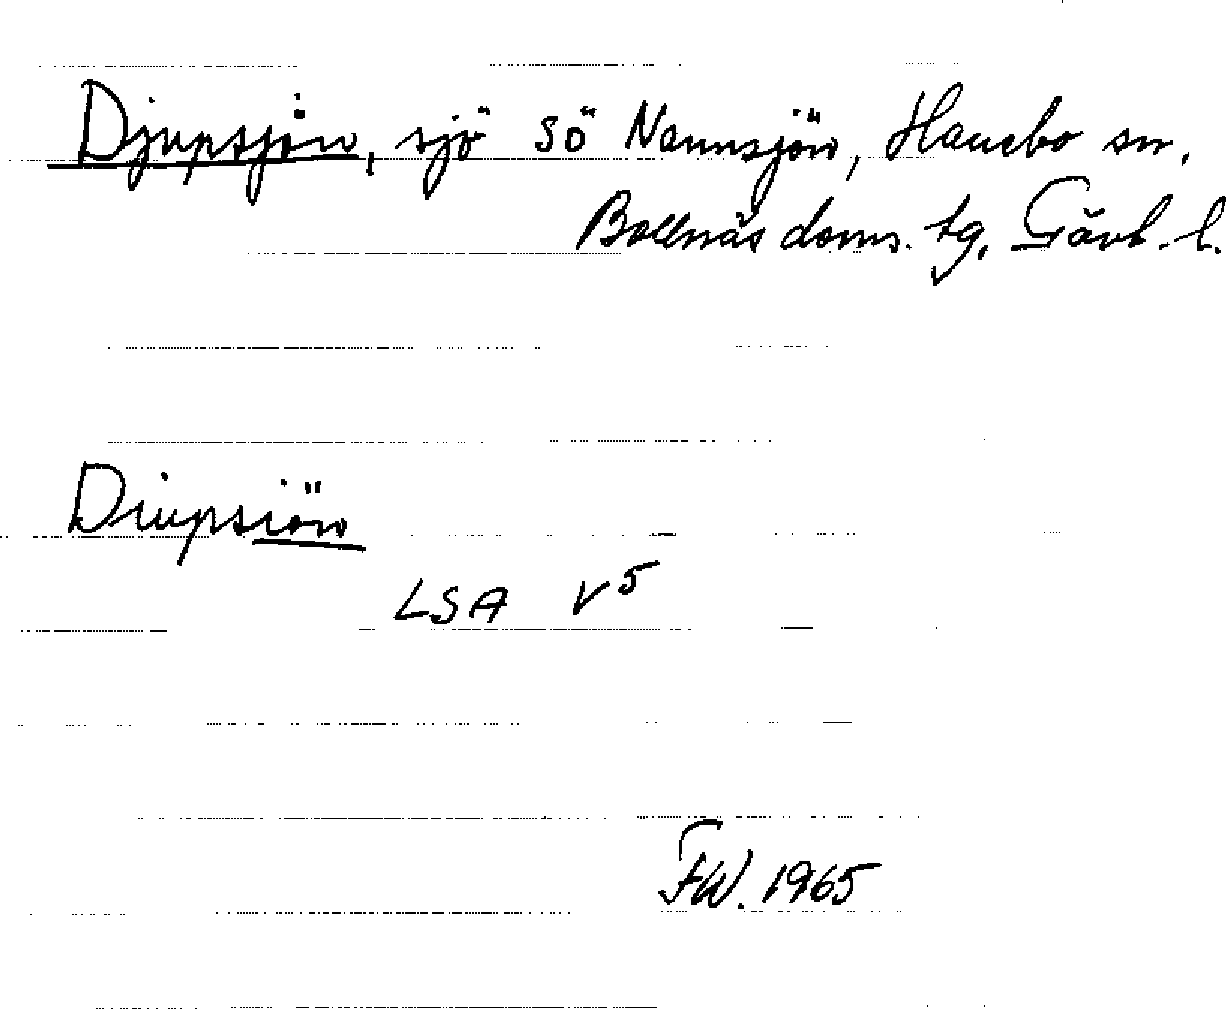 Djupsjön, sjö sö Nannsjön, Hanebo sn,
Bollnäs doms. tg, Gävl. l.
Diupsiön
LSA V5
FW. 1965